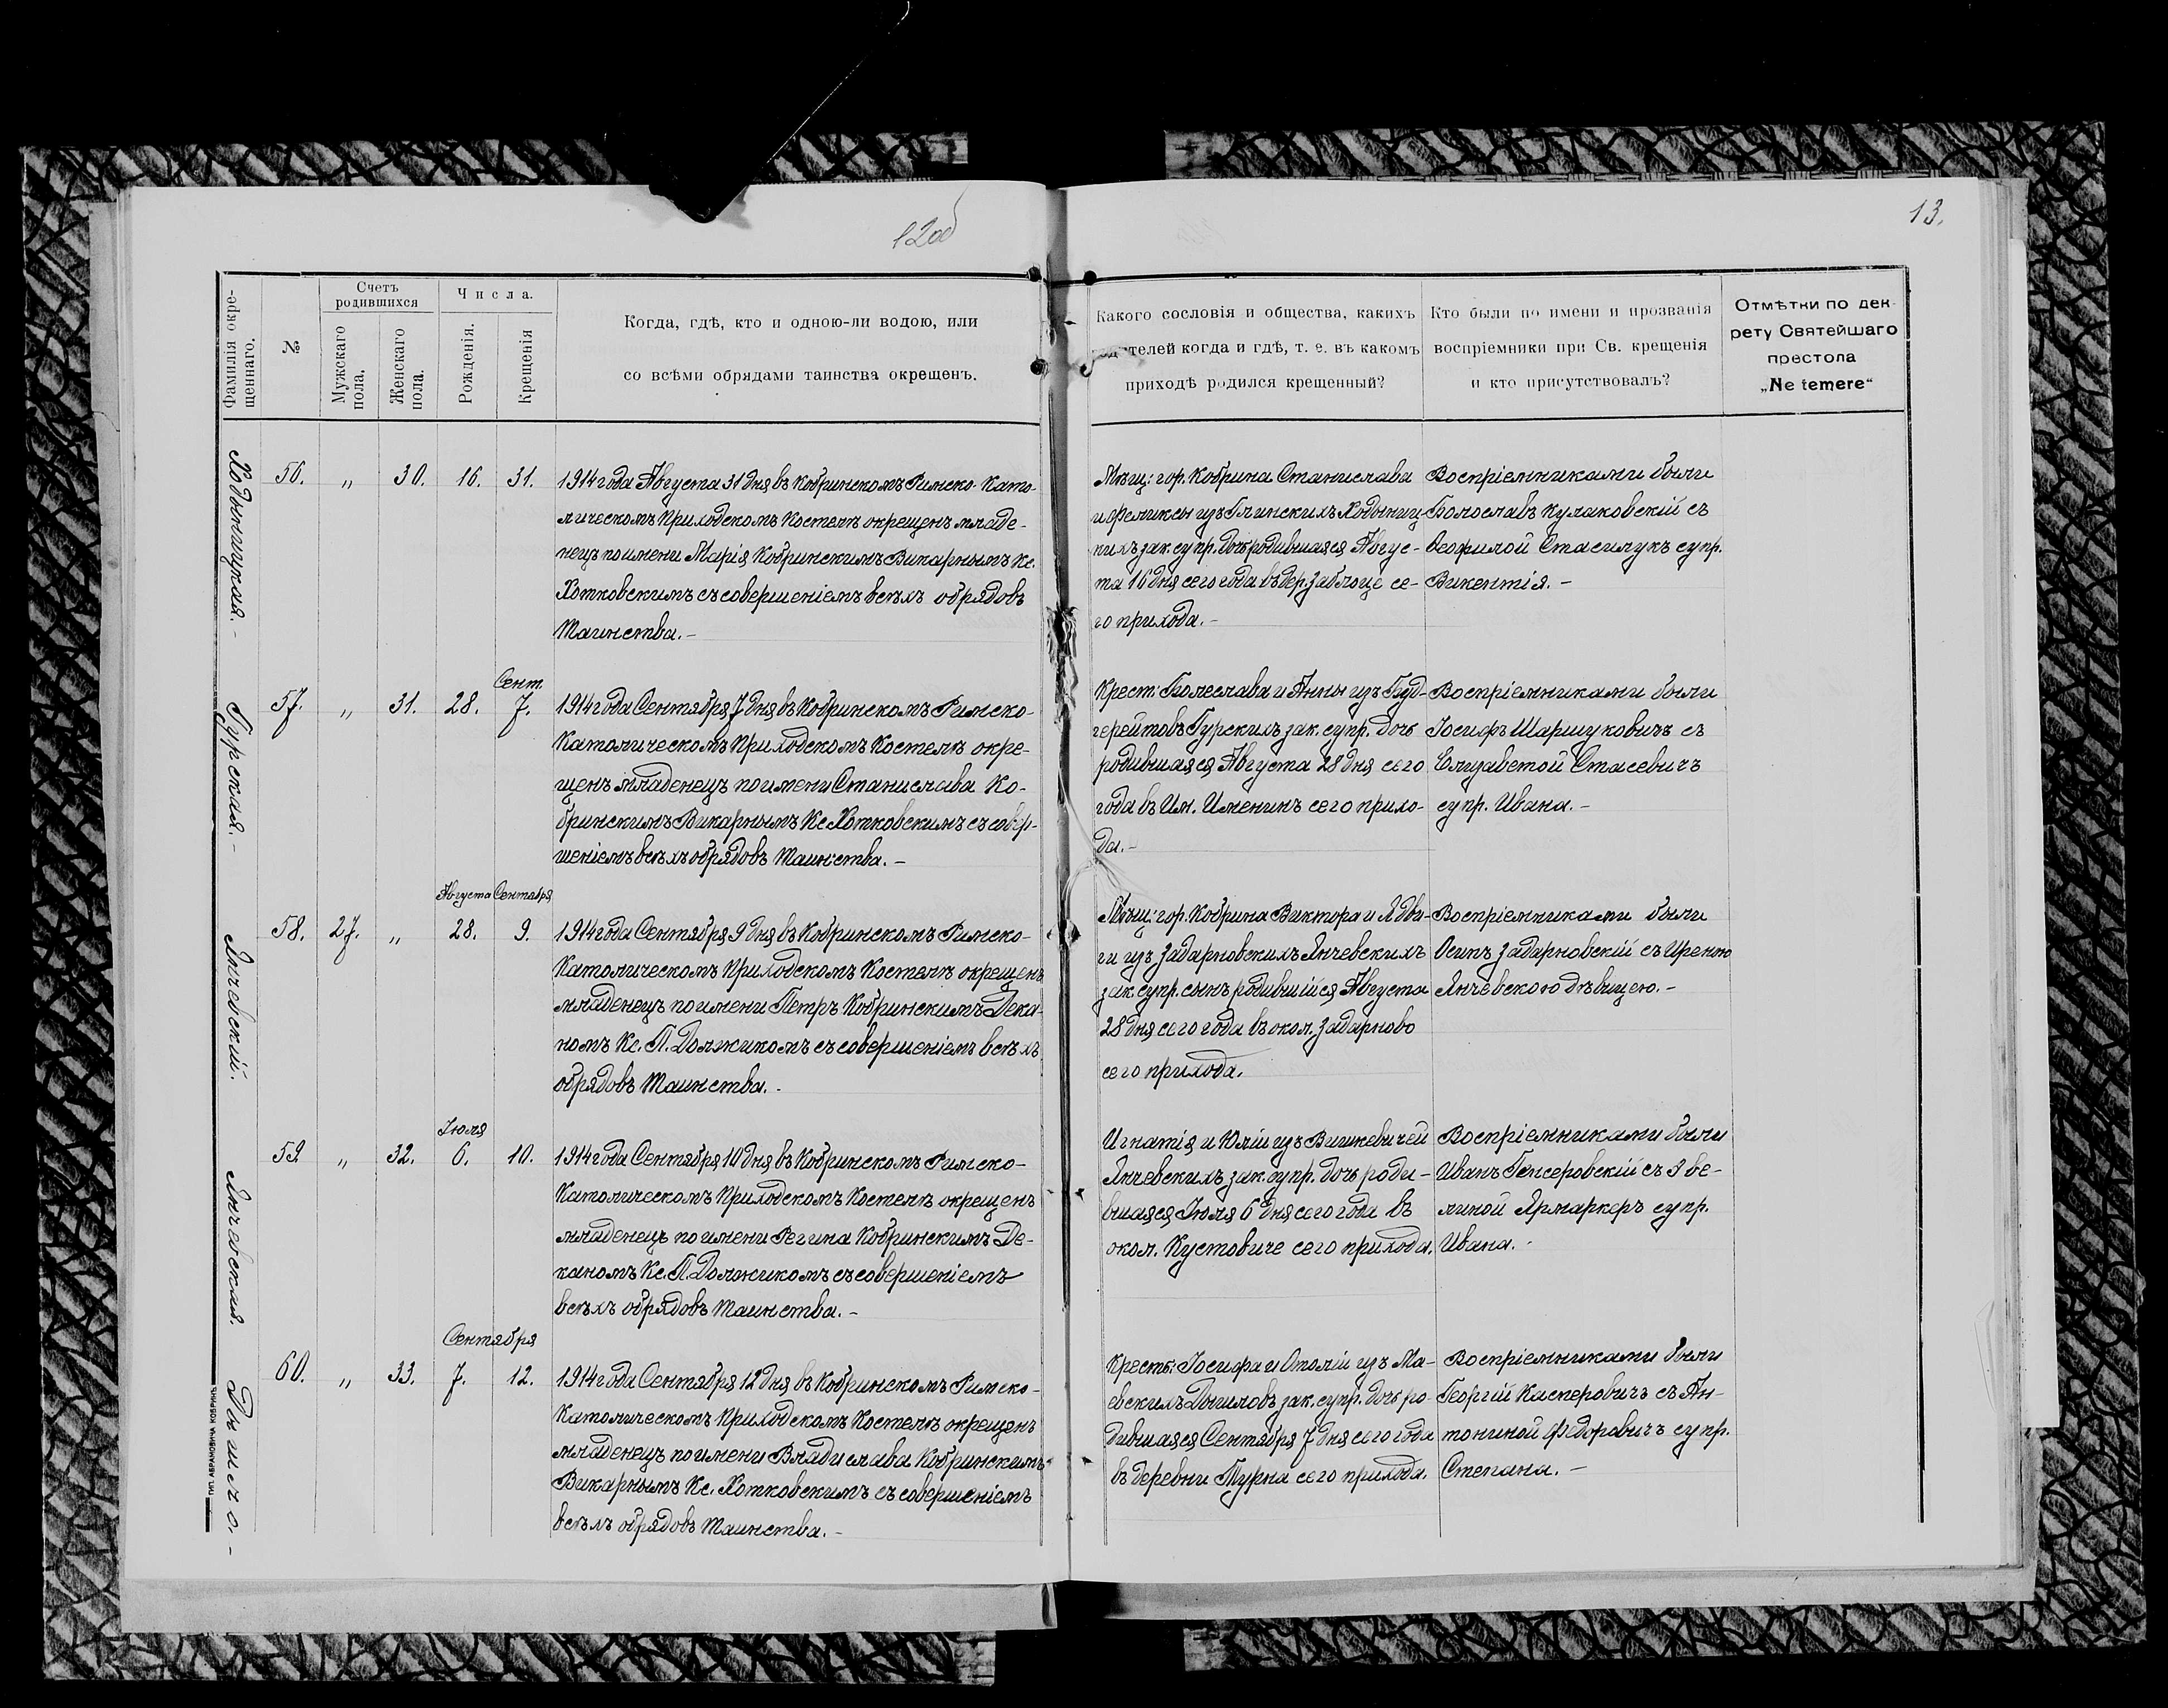 12об
13.
Фамилія окре-
щеннаго.
№
Счетъ
родившихся
Мужскаго
пола.
Женскаго
пола.
Числа.
Рожденія.
Крещенія
Когда, гдѣ, кто и одною-ли водою, или
со всѣми обрядами таинства окрещенъ.
Какого сословія и общества, какихъ
родителей когда и гдѣ, т. е. въ какомъ
приходѣ родился крещенный?
Кто были по имени и прозванія
воспріемники при Св. крещенія
и кто присутствовалъ?
Отмѣтки по дек-
рету Святейшаго
престола
„Ne temere“
Ходыницкая.-
56. „ 30. 16. 31.
1914 года Августа 31 дня въ Кобринскомъ Римско-Като-
лическомъ Приходскомъ Костелѣ окрещенъ младе-
нецъ по имени Марія Кобринскимъ Викарнымъ Кс.
Хотковскимъ съ совершеніемъ всѣхъ обрядовъ
Таинства.-
Мѣщ: гор. Кобрина Станислава
и Феликсы изъ Глинскихъ Ходыниц-
кихъ зак. супр. дочь родившаяся Авгус-
та 16 дня сего года въ дер. Заблоце се-
го прихода.-
Воспріемниками были
Болославъ Кулаковскій съ
Ѳеофилой Стасилукъ супр.
Викентія.-
Гурская.-
57. „ 31. 28. Сент. 7.
1914 года Сентября 7 дня въ Кобринскомъ Римско-
Католическомъ Приходскомъ Костелѣ окре-
щенъ младенецъ по имени Станислава Ко-
бринскимъ Викарнымъ Кс Хотковскимъ съ совер-
шеніемъ всѣхъ обрядовъ Таинства.-
Крест: Болеслава и Анны изъ Буд-
герейтовъ Гурскихъ зак. супр. дочь
родившаяся Августа 28 дня сего
года въ Им. Именинъ сего прихо-
да.-
Воспріемниками были
Іосифъ Шаршуковичъ съ
Елизаветой Стасевичъ
супр. Ивана.-
Янчевскій.
Августа Сентября
58. 27. „ 28. 9.
1914 года Сентября 9 дня въ Кобринскомъ Римско-
Католическомъ Приходскомъ Костелѣ окрещенъ
младенецъ по имени Петръ Кобринскимъ Дека-
номъ Кс. П. Должикомъ съ совершеніемъ всѣхъ
обрядовъ Таинства.-
Мѣщ: гор. Кобрина Виктора и Ядви-
ги изъ Задарновскихъ Янчевскихъ
зак. супр. сынъ родившійся Августа
28 дня сего года въ окол. Задарново
сего прихода.
Воспріемниками были
Осипъ Задарновскій съ Иреною
Янчевскою дѣвицею.-
Янчевская.
Іюля
59. „ 32. 6. 10.
1914 года Сентября 10 дня въ Кобринскомъ Римско-
Католическомъ Приходскомъ Костелѣ окрещенъ
младенецъ по имени Регина Кобринскимъ Де-
каномъ Кс. П. Должикомъ съ совершеніемъ
всѣхъ обрядовъ Таинства.-
Игнатія и Юліи изъ Вишкевичей
Янчевскихъ зак. супр. дочь роди-
вшаяся Іюля 6 дня сего года въ
окол. Кустовиче сего прихода.
Воспріемниками были
Иванъ Гонсеровскій съ Эве-
линой Ярмаркеръ супр.
Ивана.-
Сентября
Дымша.-
60. „ 33. 7. 12.
1914 года Сентября 12 дня въ Кобринскомъ Римско-
Католическомъ Приходскомъ Костелѣ окрещенъ
младенецъ по имени Владислава Кобринскимъ
Викарнымъ Кс. Хотковскимъ съ совершеніемъ
всѣхъ обрядовъ Таинства.-
Крестъ: Іосифа и Отоліи изъ Ма-
евскихъ зак. супр. дочь ро-
дившаяся Сентября 7 дня сего года
въ деревни Турна сего прихода.
Воспріемниками были
Георгій Касперовичъ съ Ан-
тониной Федоровичъ супр.
Степана.-
ТИП. АБРАМОВИЧА КОБРИНЪ